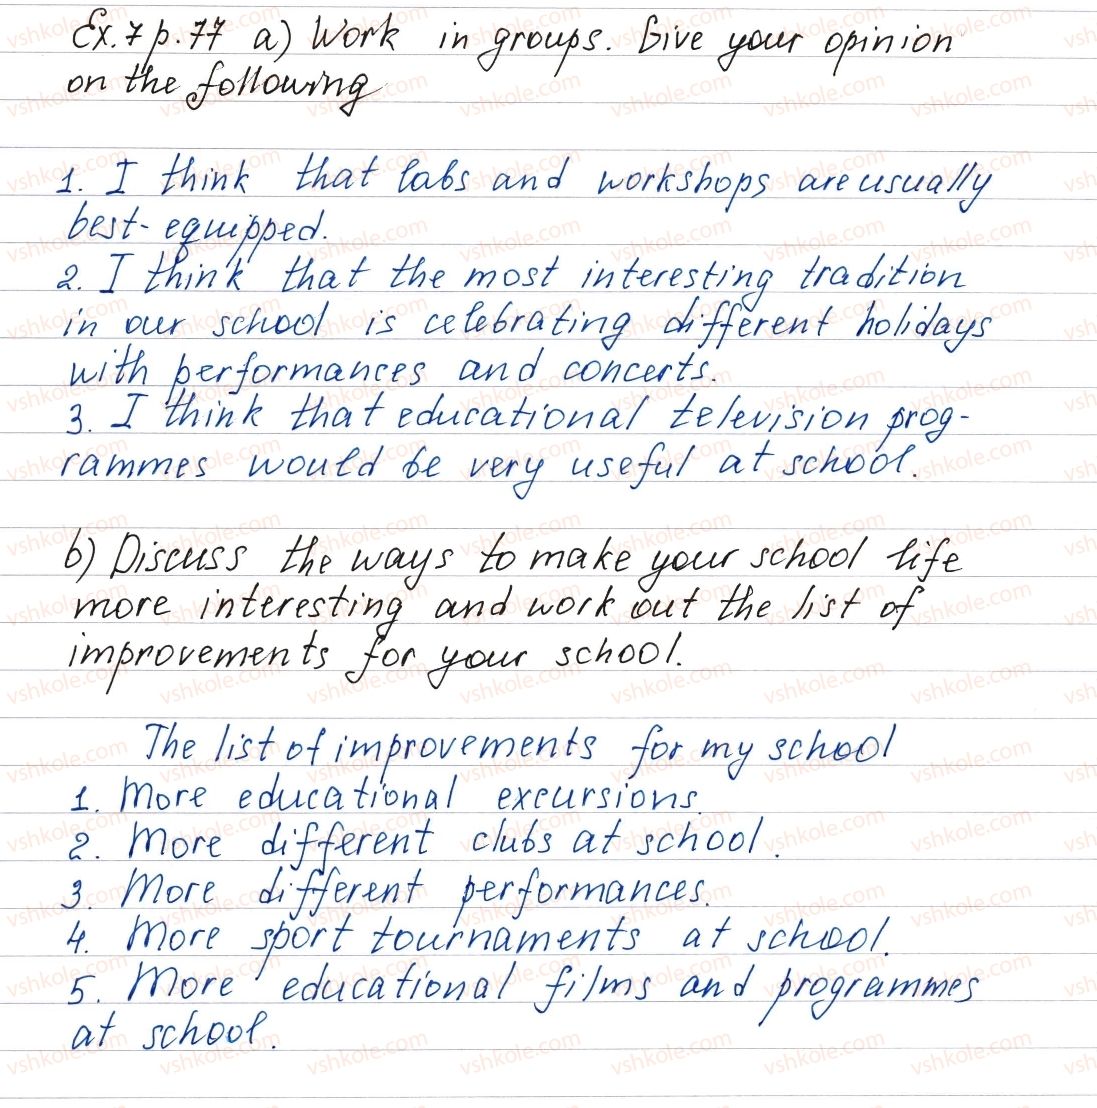 Ex. 7 p. 77 a) Work in groups. Give your opinion
on the following
1. I think that labs and workshops are usually
best-equipped.
2. I think that the most interesting tradition
in our school is celebrating different holidays
with performances and concerts.
3. I think that educational television prog-
rammes would be very useful at school.
b) Discuss the ways to make your school life
more interesting and work out the list of
improvements for your school.
The list of improvements for my school
1. More educational excursions.
2. More different clubs at school.
3. More different performances.
4. More sport tournaments at school.
5. More educational films and programmes
at school.
vshkole.com